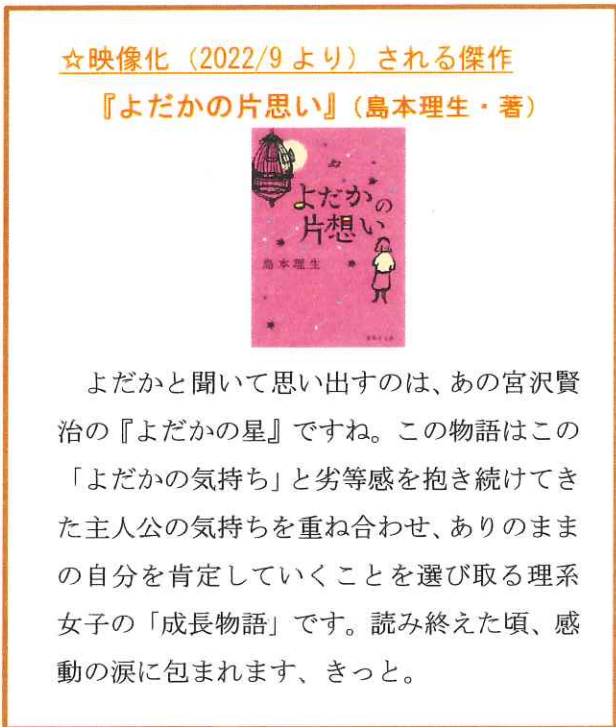 ☆映像化（2022/9 より）される傑作
『よだかの片思い』（島本理生・著）
よだかの
片想い
島本理生
よだかと聞いて思い出すのは、あの宮沢賢
治の『よだかの星』ですね。この物語はこの
「よだかの気持ち」と劣等感を抱き続けてき
た主人公の気持ちを重ね合わせ、ありのまま
の自分を肯定していくことを選び取る理系
女子の「成長物語」です。読み終えた頃、感
動の涙に包まれます、きっと。